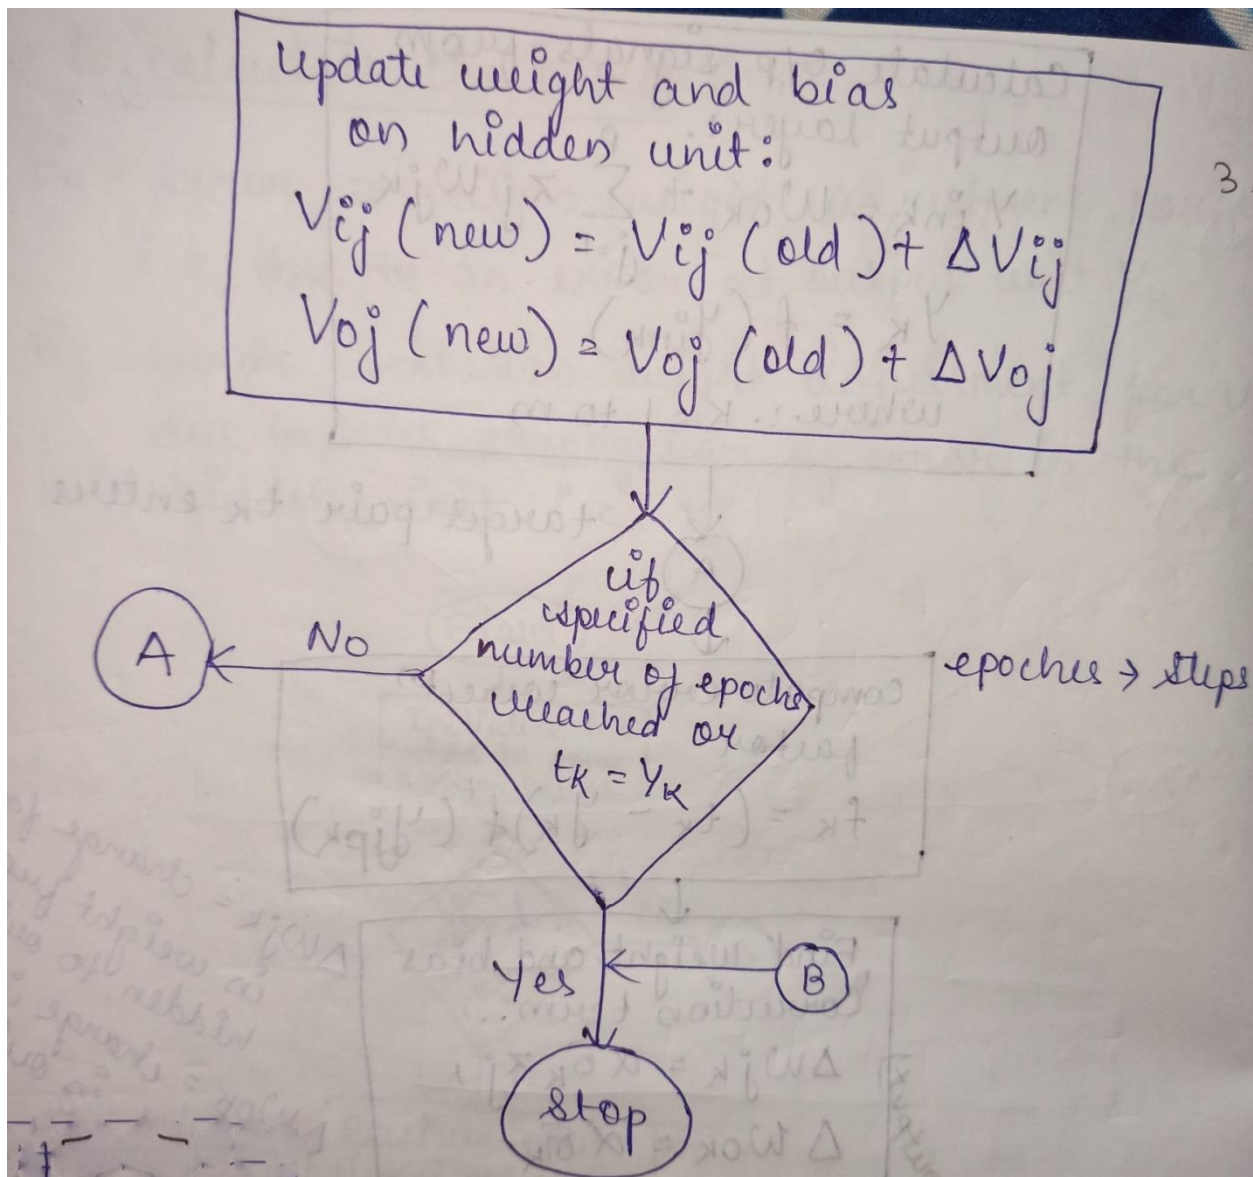 Update weight and bias
on hidden unit:
Vij (new) = Vij (old) + ΔVij
Voj (new) = Voj (old) + ΔVoj
3
if
specified
number of epochs
reached or
tk = Yk
No
A
epoches → Steps
Yes
B
Stop